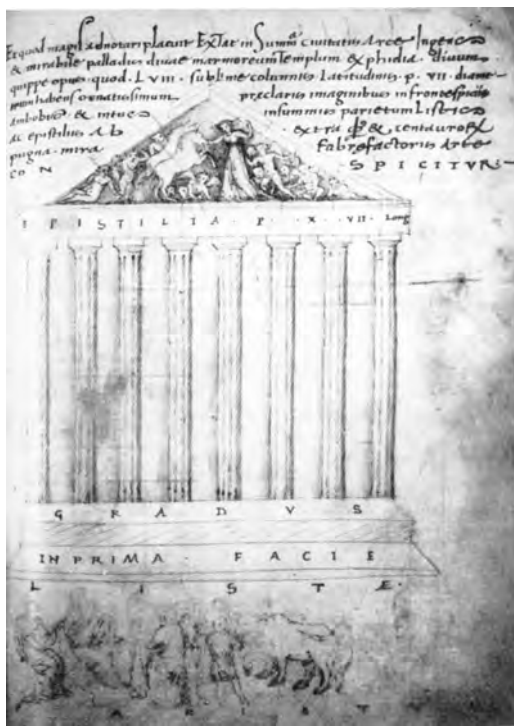 Et quod magis adnotari placuit Extat in Summa civitatis Arce Ingens
& mirabile palladis divae marmoreum Templum ex phidia divum
quippe opus quod · LVIII · sublime columnis Latitudinis · p · VII · diame
trum habens ornatissimum preclaris imaginibus in frontespiciis
ambobus & intus insummis parietum Listis
ac epistiliis Ab extra & centaurorum
pugna · mira fabrefactoris Arte
CO N S P I C I T V R ·
E P I S T I L I A · P · X · VII · Long
G R A D V S
IN PRIMA · F A C I E
L I S T Æ ·